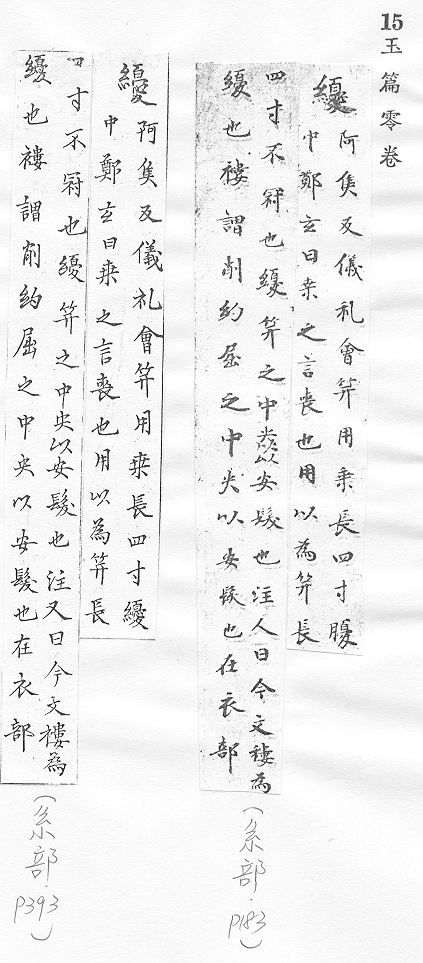 15 玉篇零卷
纋 阿隻反儀礼會笄用桒長四寸
中鄭玄曰桒之言喪也用以為笄長
四寸不冠也纋笄之中央以安髮也注人曰今文褸為
纋也褸謂削約屈之中央以安髮也在衣部
(系部.P183)
纋 阿隻反儀礼會笄用桒長四寸纋
中鄭玄曰桒之言喪也用以為笄長
四寸不冠也纋笄之中央以安髮也注又曰今文樓為
纋也褸謂削約屈之中央以安髮也在衣部
(系部.P393)